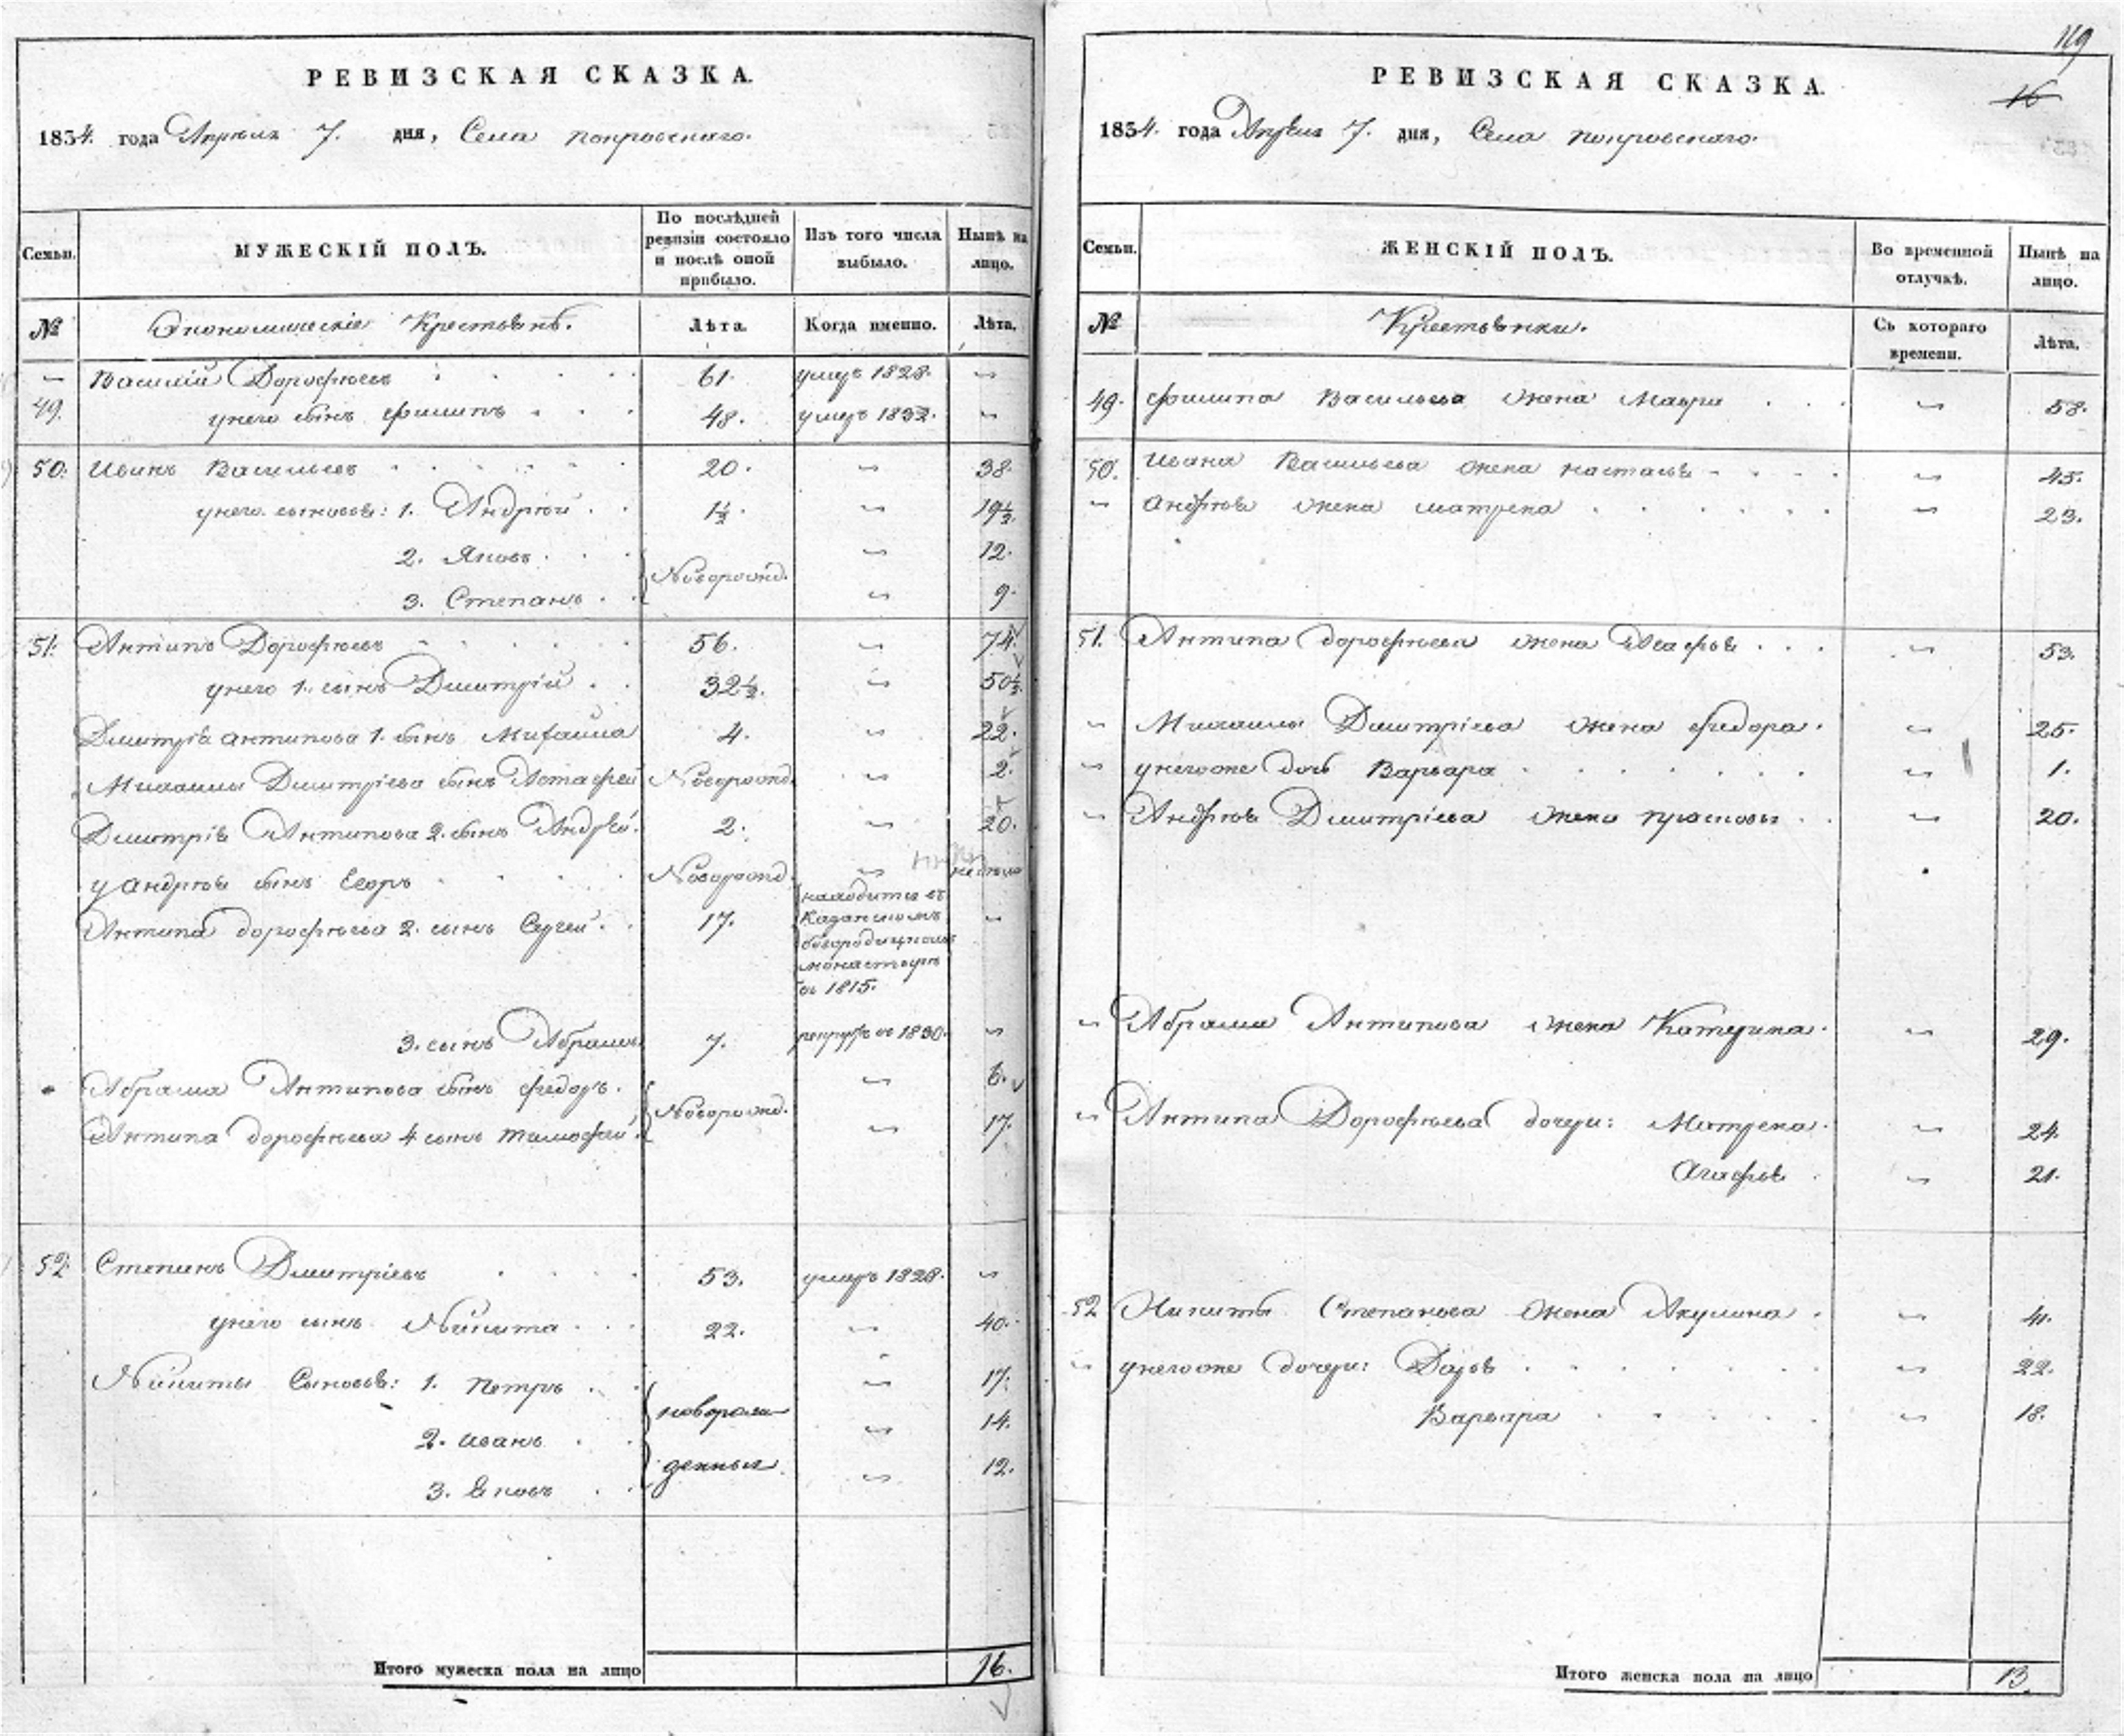 РЕВИЗСКАЯ СКАЗКА.
1834. года Апреля 7. дня, Села покровскаго.
Семьи.
МУЖЕСКІЙ ПОЛЪ.
По послѣдней ревизіи состояло и послѣ оной прибыло.
Изъ того числа выбыло.
Нынѣ на лицо.
№
Экономическіе Крестьянѣ.
Лѣта.
Когда именно.
Лѣта.
Василій Дорофѣевъ 61. умеръ 1828. —
49. у него сынъ филипъ 48. умеръ 1832. —
50. Иванъ Васильевъ 20. — 38.
у него сыновья: 1. Андрѣй 1½. — 19½.
2. Яковъ — 12.
Новорожд.
3. Степанъ — 9.
51. Антипъ Дорофѣевъ 56. — 74.
у него 1. сынъ Дмитрій 32½. — 50½.
Дмитрія антипова 1. сынъ Михаила 4. — 22.
Михаилы Дмитріева сынъ Астафей Новорожд. — 2.
Дмитрія Антипова 2. сынъ Андрѣй. 2. — 20.
у Андрѣя сынъ Егоръ Новорожд. —
Антипа дорофѣева 2. сынъ Сергей. 17. находится въ Казанскомъ богородицкомъ монастырѣ съ 1815. —
3. сынъ Абрамъ 7. рекрутъ съ 1830. —
Абрама Антипова сынъ федоръ. — 6.
Новорожд.
Антипа дорофѣева 4 сынъ тимофей. — 17.
52. Степанъ Дмитріевъ 53. умеръ 1828. —
у него сынъ Никита 22. — 40.
Никиты Сыновья: 1. Петръ — 17.
новорож-
2. иванъ — 14.
денныя
3. Яковъ — 12.
Итого мужеска пола на лицо 16.
119
16
РЕВИЗСКАЯ СКАЗКА.
1834. года Апреля 7. дня, Села покровскаго.
Семьи.
ЖЕНСКІЙ ПОЛЪ.
Во временной отлучкѣ.
Нынѣ на лицо.
№
Крестьянки.
Съ котораго времени.
Лѣта.
49. филипа Васильева жена Мавра — 58.
50. Ивана Васильева жена настасья — 45.
— андрѣя жена матрена — 23.
51. Антипа дорофѣева жена Агафья — 53.
— Михаилы Дмитріева жена федора. — 25.
— у него же дочь Варвара — 1.
— Андрѣя Дмитріева жена прасковья — 20.
— Абрама Антипова жена Катерина. — 29.
— Антипа Дорофѣева дочери: Матрена. — 24.
Агафья — 21.
52 Никиты Степанова жена Акулина — 41.
— у него же дочери: Дарья — 22.
Варвара — 18.
Итого женска пола на лицо 13